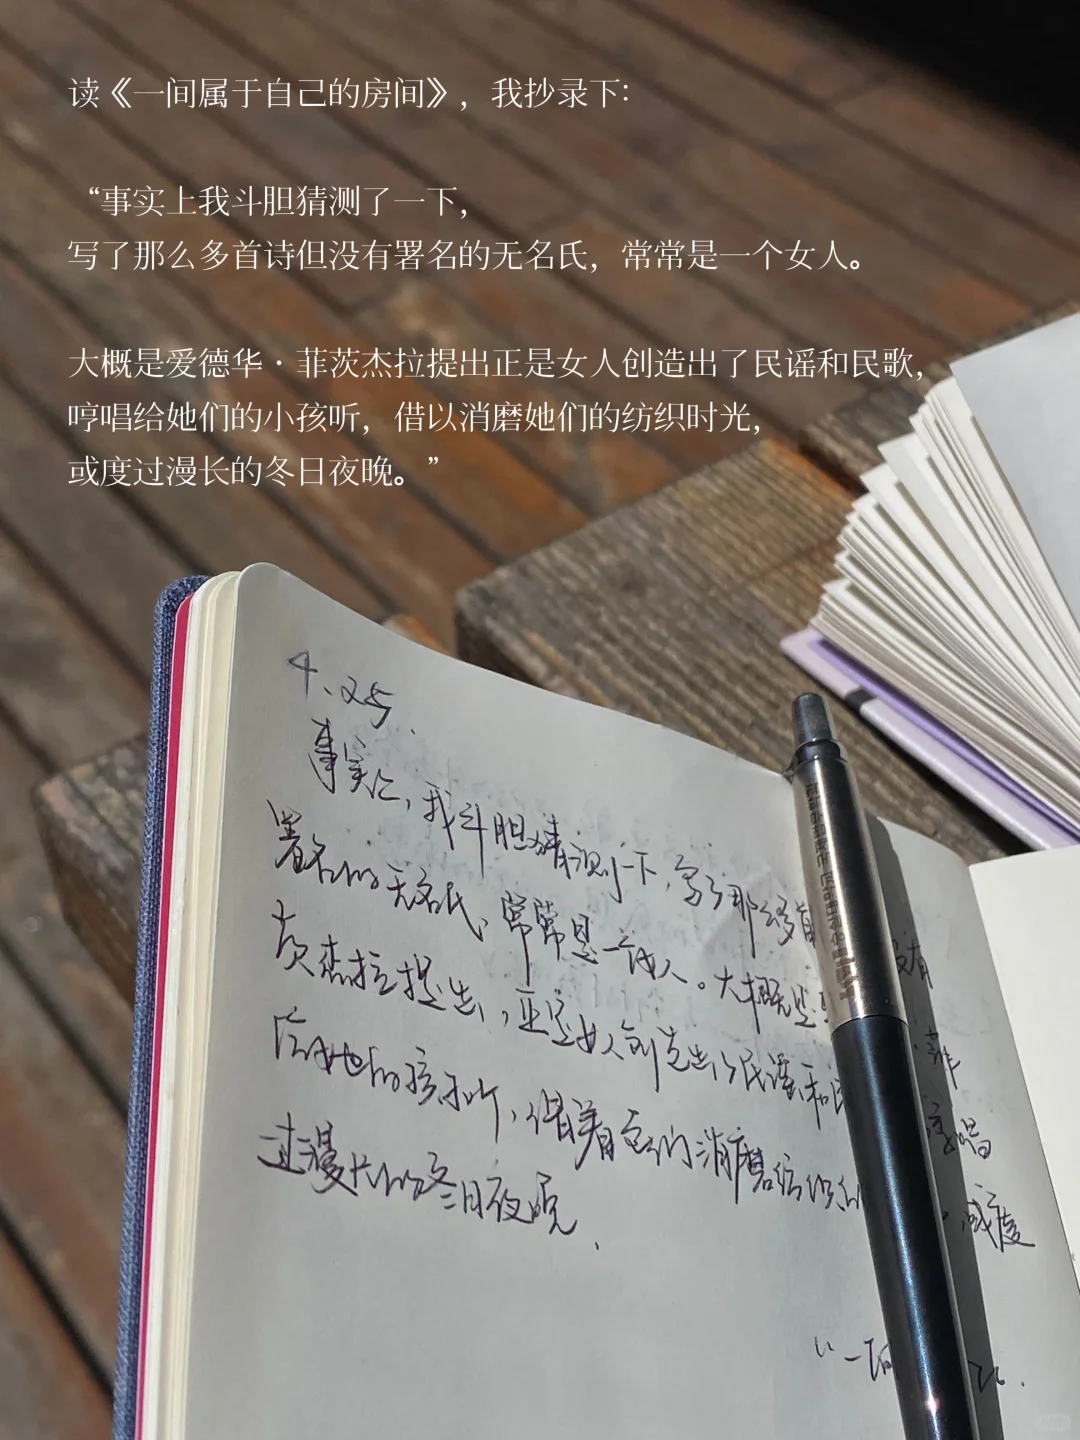 读《一间属于自己的房间》，我抄录下：
“事实上我斗胆猜测了一下，
写了那么多首诗但没有署名的无名氏，常常是一个女人。
大概是爱德华·菲茨杰拉提出正是女人创造出了民谣和民歌，
哼唱给她们的小孩听，借以消磨她们的纺织时光，
或度过漫长的冬日夜晚。”
4.25.
事实上，我斗胆猜测一下，写了那么多首 没有
署名的无名氏，常常是一个女人。大概是 ·菲
茨杰拉提出，正是女人创造出了民谣和民 哼唱
给她们的孩子听，借着它们消磨纺织的 ，或度
过漫长的冬日夜晚.
“一间